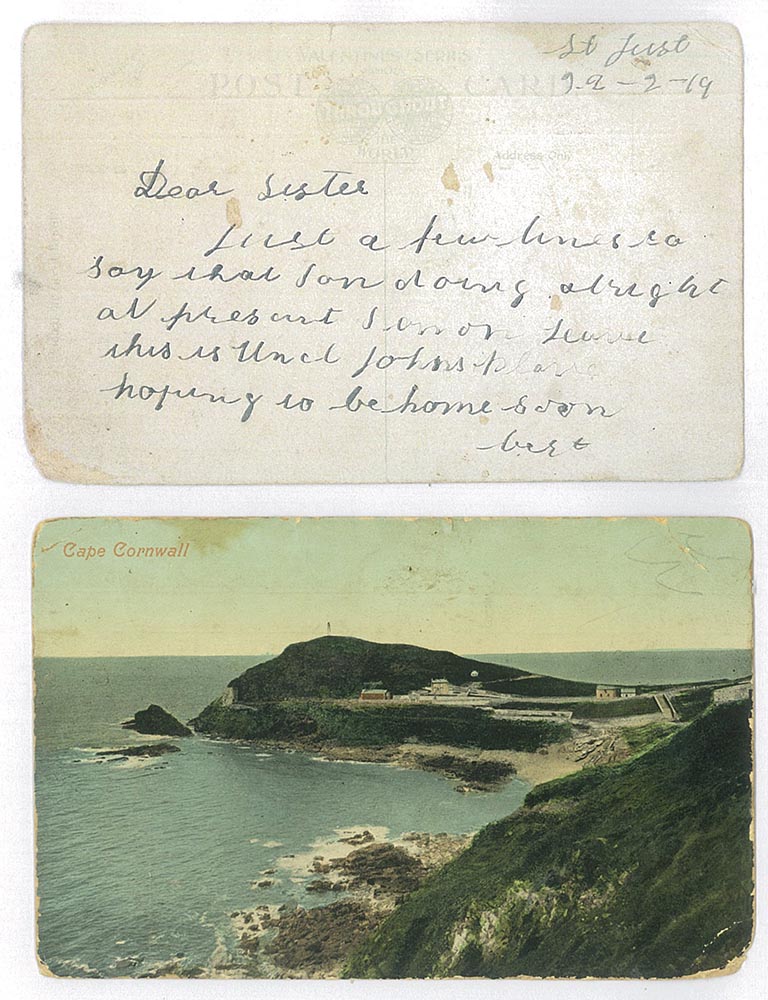 VALENTINE'S SERIES
POST CARD
THROUGHOUT
THE
WORLD
Address Only
St Just
19-2-19
Dear Sister
Just a few lines to
say that I on doing alright
at present I am on Leave
this is Uncl Johns place
hoping to be home soon
bert
Cape Cornwall